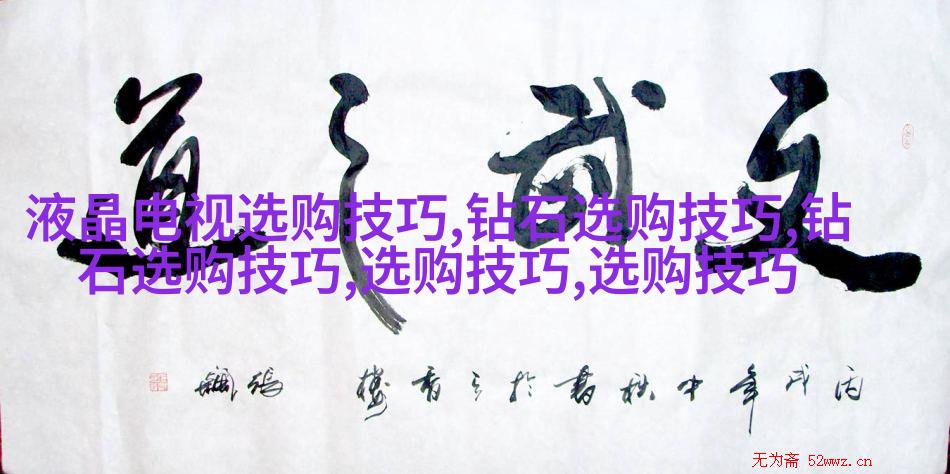 文武之道
液晶电视选购技巧,钻石选购技巧,钻
石选购技巧,选购技巧,选购技巧
丙戌年中秋書於香樓
无为斋 52wwz.cn